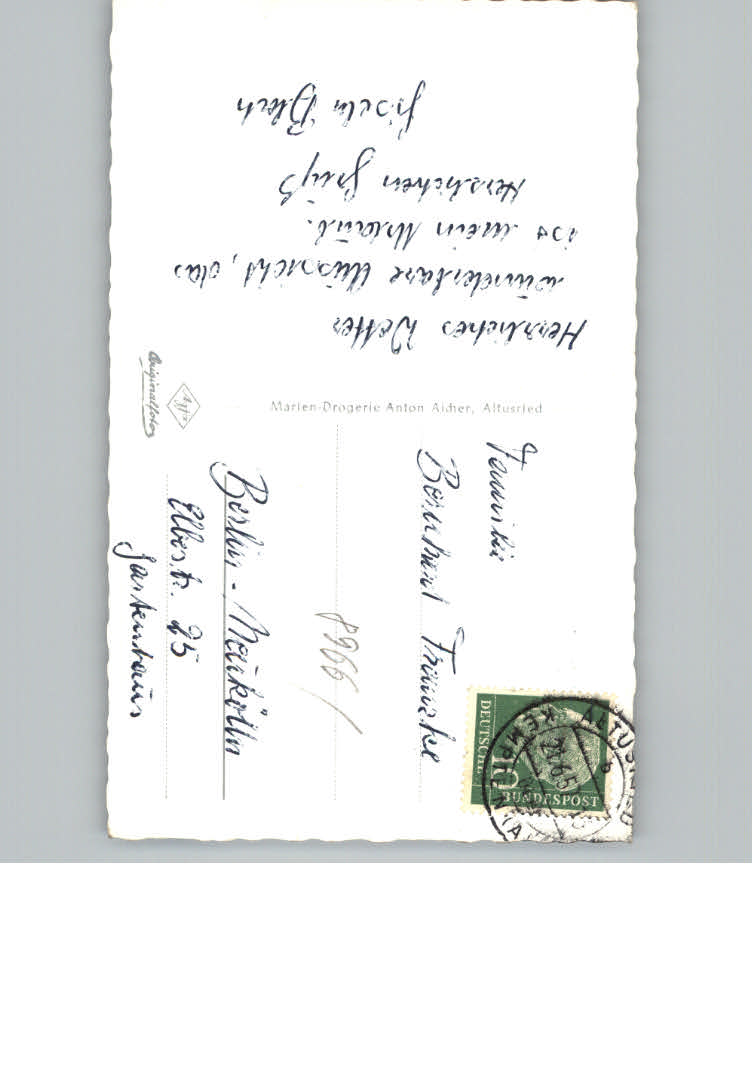 Herrliches Wetter
wunderbare Aussicht, das
ist mein Urlaub.
Herzlichen Gruß
Gisela Bloch
Marien-Drogerie Anton Aicher, Altusried
Agfa
Originalfoto
Familie
Franzke
Berlin-Neukölln
Elbestr. 25
Gartenhaus
8966/
DEUTSCHE
BUNDESPOST
10
ALTUSRIED
KEMPTEN